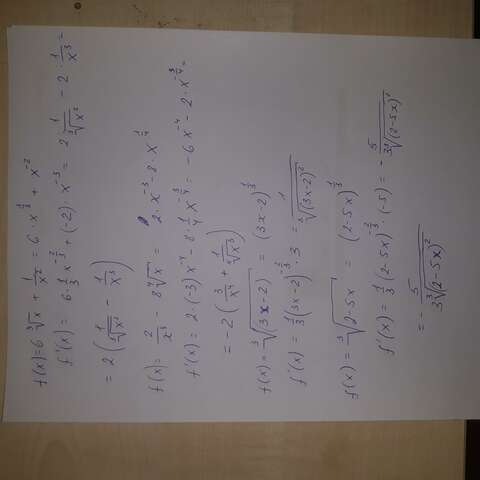 f(x) = 6∛x + 1/x² = 6 · x^(1/3) + x^(-2)
f'(x) = 6 · 1/3 x^(-2/3) + (-2) x^(-3) = 2 · 1/∛x² - 2 · 1/x³ =
= 2(1/∛x² - 1/x³)
f(x) = 2/x³ - 8⁴√x = 2 · x^(-3) - 8 · x^(1/4)
f'(x) = 2 · (-3) x^(-4) - 8 · 1/4 x^(-3/4) = -6x^(-4) - 2 · x^(-3/4) =
= -2(3/x⁴ + 1/⁴√x³)
f(x) = ∛(3x-2) = (3x-2)^(1/3)
f'(x) = 1/3 (3x-2)^(-2/3) · 3 = 1/∛(3x-2)²
f(x) = ∛(2-5x) = (2-5x)^(1/3)
f'(x) = 1/3 (2-5x)^(-2/3) · (-5) = - 5/3∛(2-5x)²
= - 5/3∛(2-5x)²